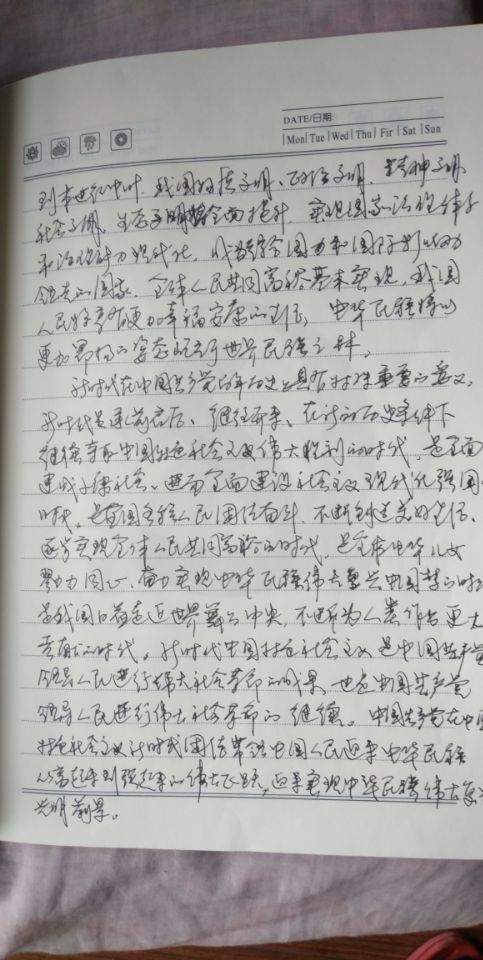 DATE/日期:
Mon Tue Wed Thu Fir Sat Sun
到本世纪中叶，我国的物质文明、政治文明、精神文明
社会文明、生态文明将全面提升，实现国家治理体系
和治理能力现代化，成为综合国力和国际影响力
领先的国家，全体人民共同富裕基本实现，我国
人民将享有更加幸福安康的生活，中华民族将以
更加昂扬的姿态屹立于世界民族之林。
新时代在中国共产党历史上具有特殊重要的意义，
新时代是承前启后、继往开来、在新的历史条件下
继续夺取中国特色社会主义伟大胜利的时代，是全面
建成小康社会、进而全面建设社会主义现代化强国
时代，是全国各族人民团结奋斗、不断创造美好生活、
逐步实现全体人民共同富裕的时代，是全体中华儿女
勠力同心、奋力实现中华民族伟大复兴中国梦的时
是我国日益走近世界舞台中央、不断为人类作出更大
贡献的时代。新时代中国特色社会主义是中国共产党
领导人民进行伟大社会革命的成果，也是中国共产党
领导人民进行伟大社会革命的继续。中国共产党在中
特色社会主义新时代团结带领中国人民迎来中华民族
从富起来到强起来的伟大飞跃，迎来实现中华民族伟大复兴
光明前景。